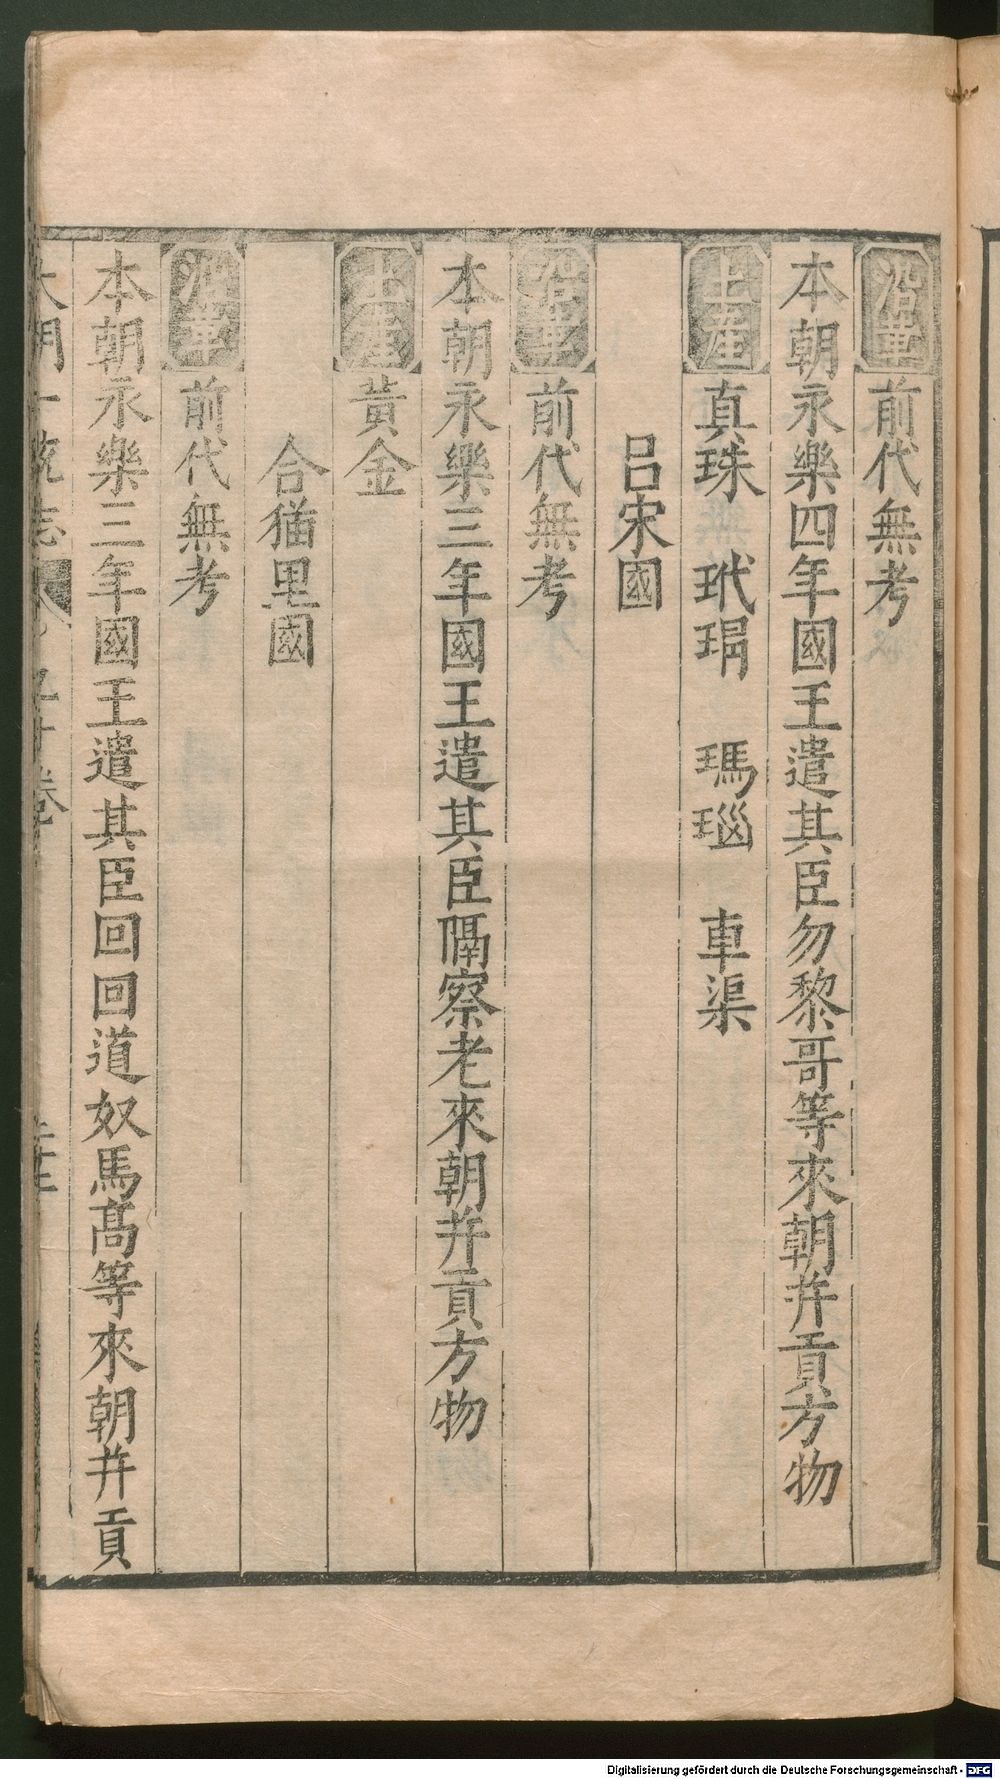 沿革前代無考
本朝永樂四年國王遣其臣勿黎哥等來朝并貢方物
土產真珠 玳瑁 瑪瑙 車渠
呂宋國
沿革前代無考
本朝永樂三年國王遣其臣隔察老來朝并貢方物
土產黃金
合猫里國
沿革前代無考
本朝永樂三年國王遣其臣回回道奴馬高等來朝并貢
大明一統志 九十卷
Digitalisierung gefördert durch die Deutsche Forschungsgemeinschaft - DFG